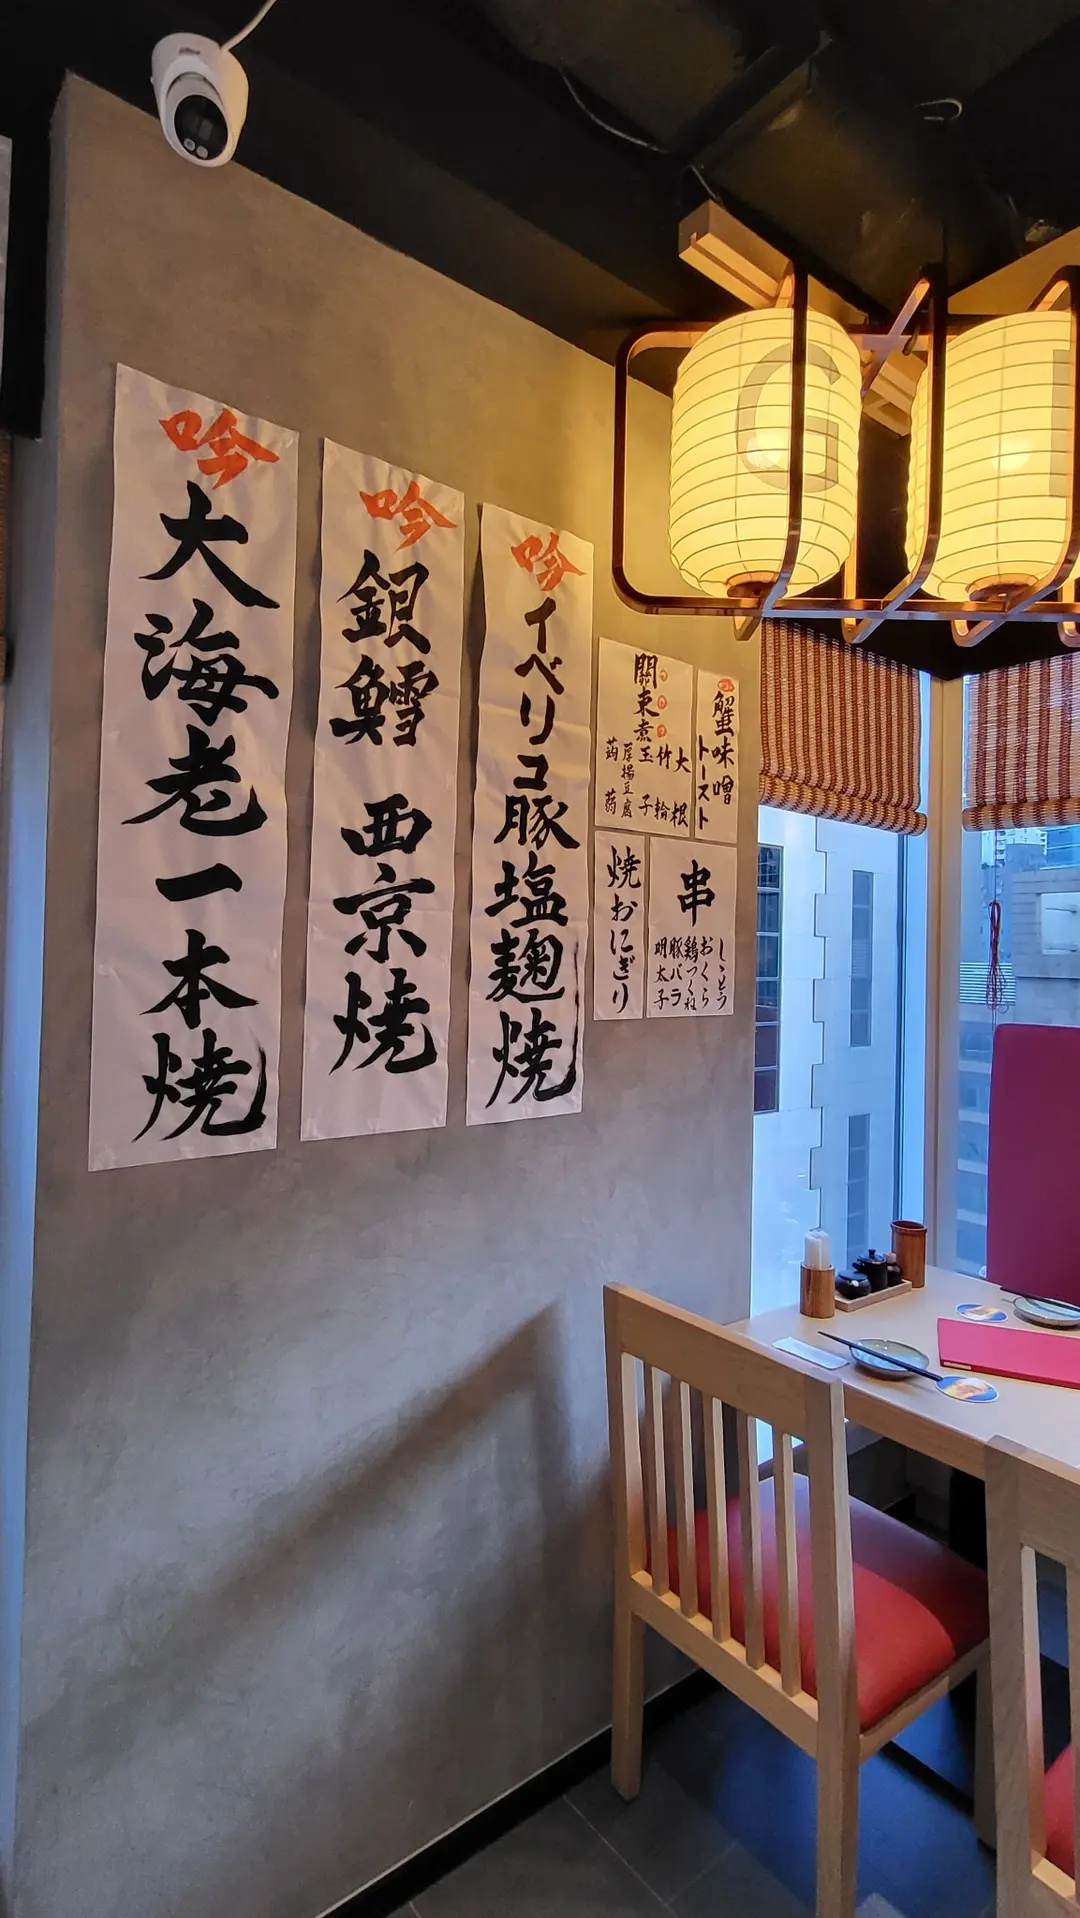 吟
大海老一本焼
吟
銀鱈 西京焼
吟
イベリコ豚塩麹焼
蟹味噌
トースト
關東煮
大根
竹輪
玉子
厚揚豆腐
蒟蒻
焼おにぎり
串
ししとう
おくら
鶏つくね
豚バラ
明太子
G